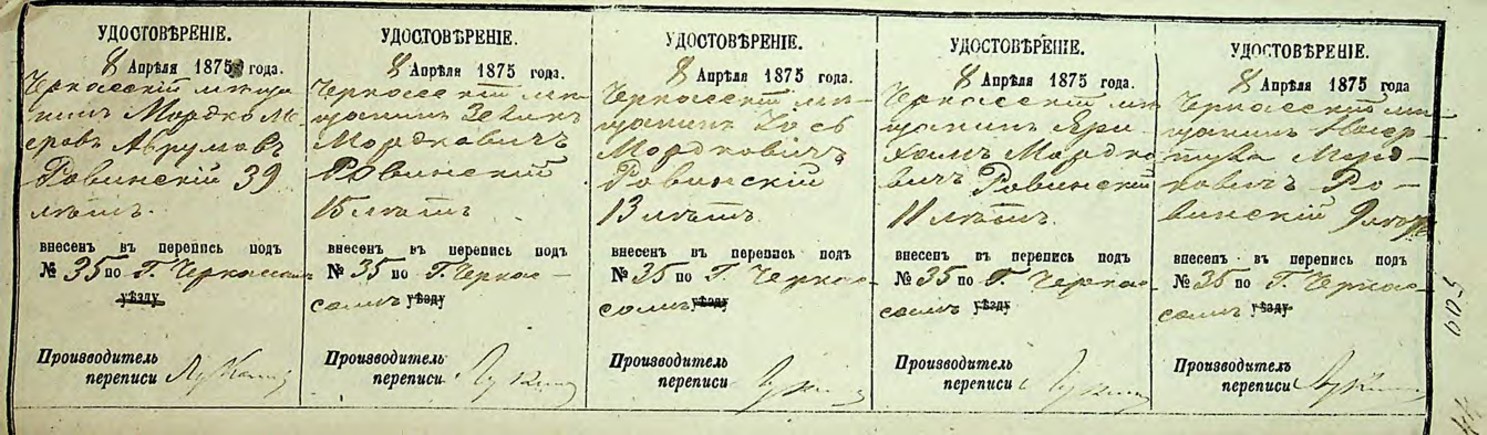 УДОСТОВѢРЕНІЕ.
8 Апрѣля 1875 года.
Черкасскій мѣща-
нинъ Мордко Ме-
еровъ Аврумовъ
Ровинскій 39
лѣтъ.
внесенъ въ перепись подъ
№ 35 по Г. Черкасамъ
уѣзду
Производитель
переписи
УДОСТОВѢРЕНІЕ.
8 Апрѣля 1875 года.
Черкасскій мѣ-
щанинъ Зелик
Мордковичъ
Ровинский
15 лѣтъ
внесенъ въ перепись подъ
№ 35 по Г. Черкас-
самъ уѣзду
Производитель
переписи
УДОСТОВѢРЕНІЕ.
8 Апрѣля 1875 года.
Черкасский мѣ-
щанинъ Іось
Мордковичъ
Ровинскій
13 лѣтъ.
внесенъ въ перепись подъ
№ 35 по Г. Черкас-
самъ уѣзду
Производитель
переписи
УДОСТОВѢРЕНІЕ.
8 Апрѣля 1875 года.
Черкасскій мѣ-
щанинъ Ери-
хамъ Мордко
вичъ Ровинскій
11 лѣтъ.
внесенъ въ перепись подъ
№ 35 по Г. Черкас-
самъ уѣзду
Производитель
переписи
УДОСТОВѢРЕНІЕ.
8 Апрѣля 1875 года
Черкасский мѣ-
щанинъ Морд-
ковичъ Ро-
винскій 9 лѣтъ
внесенъ въ перепись подъ
№ 35 по Г. Черкас-
самъ уѣзду
Производитель
переписи